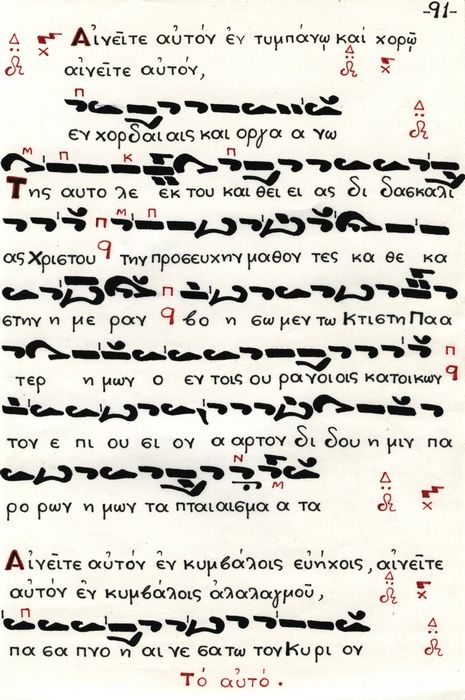 -91-
Αἰνεῖτε αὐτόν ἐν τυμπάνῳ καί χορῷ
αἰνεῖτε αὐτόν,
εν χορδαι αις και οργα α νω
Της αυτο λε εκ του και θει ει ας δι δασκαλι
ας Χριστου την προσευχην μαθον τες κα θε κα
στην η με ραν βο η σω μεν τω Κτιστη Παα
τερ η μων ο εν τοις ου ρανοιοις κατοικων
τον ε πι ου σι ον α αρτον δι δου η μιν πα
ρο ρων η μων τα πταιαισμα α τα
Αἰνεῖτε αὐτόν ἐν κυμβάλοις εὐήχοις, αἰνεῖτε
αὐτόν ἐν κυμβάλοις ἀλαλαγμοῦ,
πα σα πνο η αι νε σα τω τον Κυρι ον
Τό αὐτό.